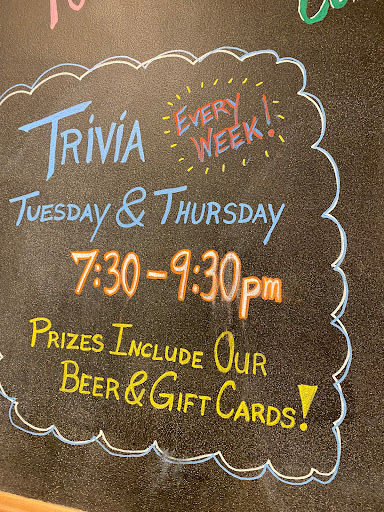 TRIVIA
EVERY
WEEK!
TUESDAY & THURSDAY
7:30-9:30pm
PRIZES INCLUDE OUR
BEER & GIFT CARDS!